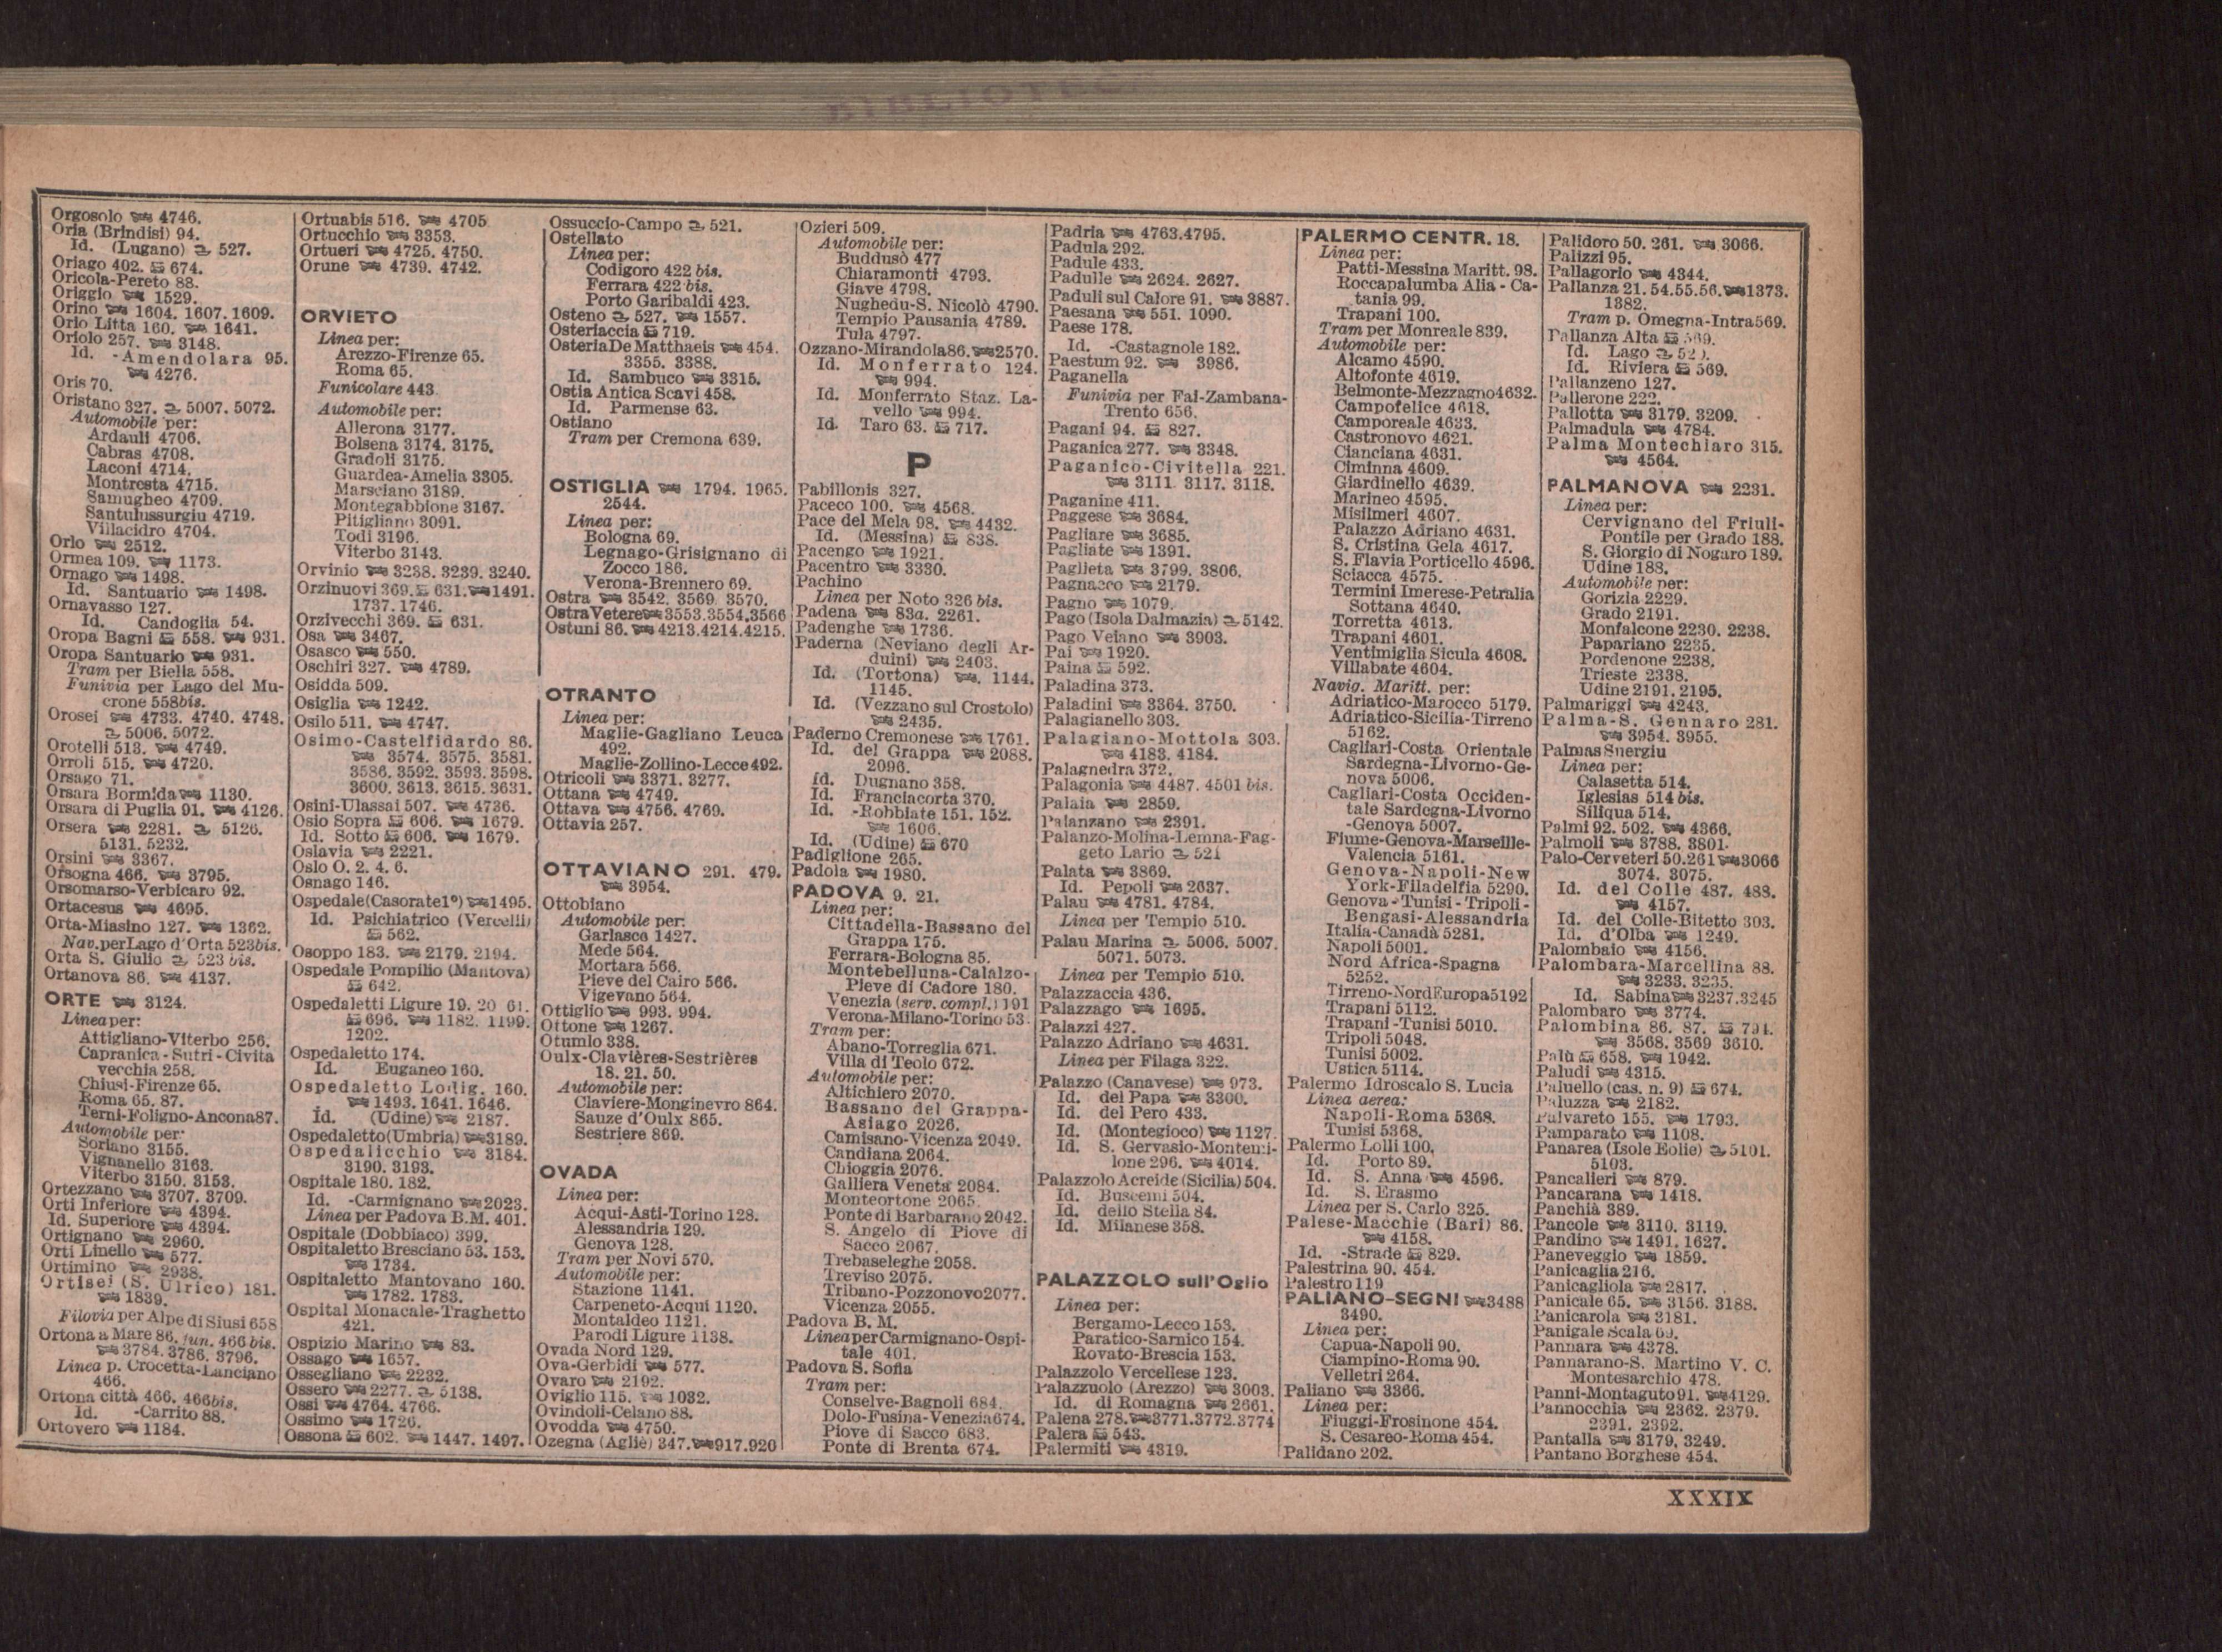 BIBLIOTEC
Orgosolo 4746.
Oria (Brindisi) 94.
Id. (Lugano) 527.
Oriago 402. 674.
Oricola-Pereto 88.
Origgio 1529.
Orino 1604. 1607. 1609.
Orio Litta 160. 1641.
Oriolo 257. 3148.
Id. -Amendolara 95.
4276.
Oris 70.
Oristano 327. 5007. 5072.
Automobile per:
Ardauli 4706.
Cabras 4708.
Laconi 4714.
Montresta 4715.
Samugheo 4709.
Santulussurgiu 4719.
Villacidro 4704.
Orlo 2512.
Ormea 109. 1173.
Ornago 1498.
Id. Santuario 1498.
Ornavasso 127.
Id. Candoglia 54.
Oropa Bagni 558. 931.
Oropa Santuario 931.
Tram per Biella 558.
Funivia per Lago del Mu-
crone 558bis.
Orosei 4733. 4740. 4748.
5006. 5072.
Orotelli 513. 4749.
Orroli 515. 4720.
Orsago 71.
Orsara Bormida 1130.
Orsara di Puglia 91. 4126.
Orsera 2281. 5126.
5131. 5232.
Orsini 3367.
Orsogna 466. 3795.
Orsomarso-Verbicaro 92.
Ortacesus 4695.
Orta-Miasino 127. 1362.
Nav. per Lago d'Orta 523bis.
Orta S. Giulio 523 bis.
Ortanova 86. 4137.
ORTE 3124.
Linea per:
Attigliano-Viterbo 256.
Capranica-Sutri-Civita
vecchia 258.
Chiusi-Firenze 65.
Roma 65. 87.
Terni-Foligno-Ancona 87.
Automobile per:
Soriano 3155.
Vignanello 3163.
Viterbo 3150. 3153.
Ortezzano 3707. 3709.
Orti Inferiore 4394.
Id. Superiore 4394.
Ortignano 2960.
Orti Linello 577.
Ortimino 2938.
Ortisei (S. Ulrico) 181.
1839.
Filovia per Alpe di Siusi 658
Ortona a Mare 86. jun. 466 bis.
3784. 3786. 3796.
Linea p. Crocetta-Lanciano
466.
Ortona città 466. 466bis.
Id. -Carrito 88.
Ortovero 1184.
Ortuabis 516. 4705
Ortucchio 3353.
Ortueri 4725. 4750.
Orune 4739. 4742.
ORVIETO
Linea per:
Arezzo-Firenze 65.
Roma 65.
Funicolare 443
Automobile per:
Allerona 3177.
Bolsena 3174. 3175.
Gradoli 3175.
Guardea-Amelia 3305.
Marsciano 3189.
Montegabbione 3167.
Pitigliano 3091.
Todi 3196.
Viterbo 3143.
Orvinio 3238. 3239. 3240.
Orzinuovi 369. 631. 1491.
1737. 1746.
Orzivecchi 369. 631.
Osa 3467.
Osasco 550.
Oschiri 327. 4789.
Osidda 509.
Osiglia 1242.
Osilo 511. 4747.
Osimo-Castelfidardo 86.
3574. 3575. 3581.
3586. 3592. 3593. 3598.
3600. 3613. 3615. 3631.
Osini-Ulassai 507. 4736.
Osio Sopra 606. 1679.
Id. Sotto 606. 1679.
Oslavia 2221.
Oslo O. 2. 4. 6.
Osnago 146.
Ospedale (Casorate 1°) 1495.
Id. Psichiatrico (Vercelli)
562.
Osoppo 183. 2179. 2194.
Ospedale Pompilio (Mantova)
642.
Ospedaletti Ligure 19. 20 61.
696. 1182. 1199.
1202.
Ospedaletto 174.
Id. Euganeo 160.
Ospedaletto Lodig. 160.
1493. 1641. 1646.
Id. (Udine) 2187.
Ospedaletto (Umbria) 3189.
Ospedalicchio 3184.
3190. 3193.
Ospitale 180. 182.
Id. -Carmignano 2023.
Linea per Padova B.M. 401.
Ospitale (Dobbiaco) 399.
Ospitaletto Bresciano 53. 153.
1734.
Ospitaletto Mantovano 160.
1782. 1783.
Ospital Monacale-Traghetto
421.
Ospizio Marino 83.
Ossago 1657.
Ossegliano 2232.
Ossero 2277. 5138.
Ossi 4764. 4766.
Ossimo 1726.
Ossona 602. 1447. 1497.
Ossuccio-Campo 521.
Ostellato
Linea per:
Codigoro 422 bis.
Ferrara 422 bis.
Porto Garibaldi 423.
Osteno 527. 1557.
Osteriaccia 719.
Osteria De Matthaeis 454.
3355. 3388.
Id. Sambuco 3315.
Ostia Antica Scavi 458.
Id. Parmense 63.
Ostiano
Tram per Cremona 639.
OSTIGLIA 1794. 1965.
2544.
Linea per:
Bologna 69.
Legnago-Grisignano di
Zocco 186.
Verona-Brennero 69.
Ostra 3542. 3569. 3570.
Ostra Vetere 3553. 3554. 3566
Ostuni 86. 4213. 4214. 4215.
OTRANTO
Linea per:
Maglie-Gagliano Leuca
492.
Maglie-Zollino-Lecce 492.
Otricoli 3371. 3277.
Ottana 4749.
Ottava 4756. 4769.
Ottavia 257.
OTTAVIANO 291. 479.
3954.
Ottobiano
Automobile per:
Garlasco 1427.
Mede 564.
Mortara 566.
Pieve del Cairo 566.
Vigevano 564.
Ottiglio 993. 994.
Ottone 1267.
Otumlo 338.
Oulx-Clavières-Sestrières
18. 21. 50.
Automobile per:
Claviere-Monginevro 864.
Sauze d'Oulx 865.
Sestriere 869.
OVADA
Linea per:
Acqui-Asti-Torino 128.
Alessandria 129.
Genova 128.
Tram per Novi 570.
Automobile per:
Stazione 1141.
Carpeneto-Acqui 1120.
Montaldeo 1121.
Parodi Ligure 1138.
Ovada Nord 129.
Ova-Gerbidi 577.
Ovaro 2192.
Oviglio 115. 1032.
Ovindoli-Celano 88.
Ovodda 4750.
Ozegna (Agliè) 347. 917. 920
Ozieri 509.
Automobile per:
Buddusò 477
Chiaramonti 4793.
Giave 4798.
Nughedu-S. Nicolò 4790.
Tempio Pausania 4789.
Tula 4797.
Ozzano-Mirandola 86. 2570.
Id. Monferrato 124.
994.
Id. Monferrato Staz. La-
vello 994.
Id. Taro 63. 717.
P
Pabillonis 327.
Paceco 100. 4568.
Pace del Mela 98. 4432.
Id. (Messina) 838.
Pacengo 1921.
Pacentro 3330.
Pachino
Linea per Noto 326 bis.
Padena 83a. 2261.
Padenghe 1736.
Paderna (Neviano degli Ar-
duini) 2403.
Id. (Tortona) 1144.
1145.
Id. (Vezzano sul Crostolo)
2435.
Paderno Cremonese 1761.
Id. del Grappa 2088.
2096.
Id. Dugnano 358.
Id. Franciacorta 370.
Id. -Robbiate 151. 152.
1606.
Id. (Udine) 670
Padiglione 265.
Padola 1980.
PADOVA 9. 21.
Linea per:
Cittadella-Bassano del
Grappa 175.
Ferrara-Bologna 85.
Montebelluna-Calalzo-
Pieve di Cadore 180.
Venezia (serv. compl.) 191
Verona-Milano-Torino 53
Tram per:
Abano-Torreglia 671.
Villa di Teolo 672.
Automobile per:
Altichiero 2070.
Bassano del Grappa-
Asiago 2026.
Camisano-Vicenza 2049.
Candiana 2064.
Chioggia 2076.
Galliera Veneta 2084.
Monteortone 2065.
Ponte di Barbarano 2042.
S. Angelo di Piove di
Sacco 2067.
Trebaseleghe 2058.
Treviso 2075.
Tribano-Pozzonovo 2077.
Vicenza 2055.
Padova B. M.
Linea per Carmignano-Ospi-
tale 401.
Padova S. Sofia
Tram per:
Conselve-Bagnoli 684.
Dolo-Fusina-Venezia 674.
Piove di Sacco 683.
Ponte di Brenta 674.
Padria 4763. 4795.
Padula 292.
Padule 433.
Padulle 2624. 2627.
Paduli sul Calore 91. 3887.
Paesana 551. 1090.
Paese 178.
Id. -Castagnole 182.
Paestum 92. 3986.
Paganella
Funivia per Fai-Zambana-
Trento 656.
Pagani 94. 827.
Paganica 277. 3348.
Paganico-Civitella 221.
3111. 3117. 3118.
Paganine 411.
Paggese 3684.
Pagliare 3685.
Pagliate 1391.
Paglieta 3799. 3806.
Pagnacco 2179.
Pagno 1079.
Pago (Isola Dalmazia) 5142.
Pago Veiano 3903.
Pai 1920.
Paina 592.
Paladina 373.
Paladini 3364. 3750.
Palagianello 303.
Palagiano-Mottola 303.
4183. 4184.
Palagnedra 372.
Palagonia 4487. 4501 bis.
Palaia 2859.
Palanzano 2391.
Palanzo-Molina-Lemna-Fag-
geto Lario 521
Palata 3869.
Id. Pepoli 2637.
Palau 4781. 4784.
Linea per Tempio 510.
Palau Marina 5006. 5007.
5071. 5073.
Linea per Tempio 510.
Palazzaccia 436.
Palazzago 1695.
Palazzi 427.
Palazzo Adriano 4631.
Linea per Filaga 322.
Palazzo (Canavese) 973.
Id. del Papa 3300.
Id. del Pero 433.
Id. (Montegioco) 1127.
Id. S. Gervasio-Montemi-
lone 296. 4014.
Palazzolo Acreide (Sicilia) 504.
Id. Buscemi 504.
Id. dello Stella 84.
Id. Milanese 358.
PALAZZOLO sull'Oglio
Linea per:
Bergamo-Lecco 153.
Paratico-Sarnico 154.
Rovato-Brescia 153.
Palazzolo Vercellese 123.
Palazzuolo (Arezzo) 3003.
Id. di Romagna 2661.
Palena 278. 3771. 3772. 3774
Palera 543.
Palermiti 4319.
PALERMO CENTR. 18.
Linea per:
Patti-Messina Maritt. 98.
Roccapalumba Alia - Ca-
tania 99.
Trapani 100.
Tram per Monreale 839.
Automobile per:
Alcamo 4590.
Altofonte 4619.
Belmonte-Mezzagno 4632.
Campofelice 4618.
Camporeale 4633.
Castronovo 4621.
Cianciana 4631.
Ciminna 4609.
Giardinello 4639.
Marineo 4595.
Misilmeri 4607.
Palazzo Adriano 4631.
S. Cristina Gela 4617.
S. Flavia Porticello 4596.
Sciacca 4575.
Termini Imerese-Petralia
Sottana 4640.
Torretta 4613.
Trapani 4601.
Ventimiglia Sicula 4608.
Villabate 4604.
Navig. Maritt. per:
Adriatico-Marocco 5179.
Adriatico-Sicilia-Tirreno
5162.
Cagliari-Costa Orientale
Sardegna-Livorno-Ge-
nova 5006.
Cagliari-Costa Occiden-
tale Sardegna-Livorno
-Genova 5007.
Fiume-Genova-Marseille-
Valencia 5161.
Genova-Napoli-New
York-Filadelfia 5290.
Genova-Tunisi-Tripoli-
Bengasi-Alessandria
Italia-Canadà 5281.
Napoli 5001.
Nord Africa-Spagna
5252.
Tirreno-Nord Europa 5192
Trapani 5112.
Trapani-Tunisi 5010.
Tripoli 5048.
Tunisi 5002.
Ustica 5114.
Palermo Idroscalo S. Lucia
Linea aerea:
Napoli-Roma 5368.
Tunisi 5368.
Palermo Lolli 100.
Id. Porto 89.
Id. S. Anna 4596.
Id. S. Erasmo
Linea per S. Carlo 325.
Palese-Macchie (Bari) 86.
4158.
Id. -Strade 829.
Palestrina 90. 454.
Palestro 119
PALIANO-SEGNI 3488
3490.
Linea per:
Capua-Napoli 90.
Ciampino-Roma 90.
Velletri 264.
Paliano 3366.
Linea per:
Fiuggi-Frosinone 454.
S. Cesareo-Roma 454.
Palidano 202.
Palidoro 50. 261. 3066.
Palizzi 95.
Pallagorio 4344.
Pallanza 21. 54. 55. 56. 1373.
1382.
Tram p. Omegna-Intra 569.
Pallanza Alta 569.
Id. Lago
Id. Riviera 569.
Pallanzeno 127.
Pallerone 222.
Pallotta 3179. 3209.
Palmadula 4784.
Palma Montechiaro 315.
4564.
PALMANOVA 2231.
Linea per:
Cervignano del Friuli-
Pontile per Grado 188.
S. Giorgio di Nogaro 189.
Udine 188.
Automobile per:
Gorizia 2229.
Grado 2191.
Monfalcone 2230. 2238.
Papariano 2235.
Pordenone 2238.
Trieste 2338.
Udine 2191. 2195.
Palmariggi 4243.
Palma-S. Gennaro 281.
3954. 3955.
Palmas Suergiu
Linea per:
Calasetta 514.
Iglesias 514 bis.
Siliqua 514.
Palmi 92. 502. 4366.
Palmoli 3788. 3801.
Palo-Cerveteri 50. 261 3066
3074. 3075.
Id. del Colle 487. 488.
4157.
Id. del Colle-Bitetto 303.
Id. d'Olba 1249.
Palombaio 4156.
Palombara-Marcellina 88.
3233. 3235.
Id. Sabina 3237. 3245
Palombaro 3774.
Palombina 86. 87. 791.
3568. 3569 3610.
Palù 658. 1942.
Paludi 4315.
Paluello (cas. n. 9) 674.
Paluzza 2182.
Palvareto 155. 1793.
Pamparato 1108.
Panarea (Isole Eolie) 5101.
5103.
Pancalieri 879.
Pancarana 1418.
Panchià 389.
Pancole 3110. 3119.
Pandino 1491. 1627.
Paneveggio 1859.
Panicaglia 216.
Panicagliola 2817.
Panicale 65. 3156. 3188.
Panicarola 3181.
Panigale Scala 69.
Pannara 4378.
Pannarano-S. Martino V. C.
Montesarchio 478.
Panni-Montaguto 91. 4129.
Pannocchia 2362. 2379.
2391. 2392.
Pantalla 3179. 3249.
Pantano Borghese 454.
XXXIX